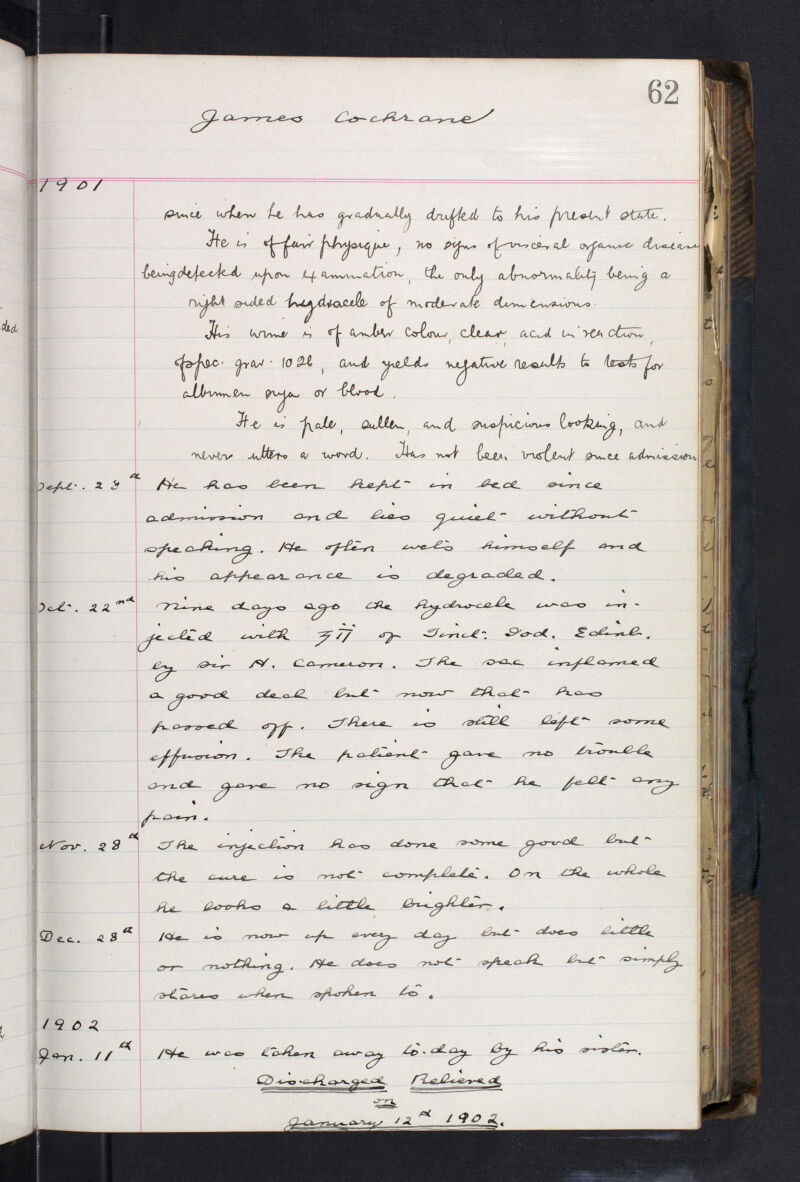 62
James Cochrane
1901
since when he has gradually drifted to his present state.
He is of fair physique, no signs of visceral organic disease
being detected upon examination, the only abnormality being a
right sided hydrocele of moderate dimensions.
His urine is of amber colour, clear, acid in reaction,
of spec. grav. 1026, and yields negative results to tests for
albumen sugar or blood.
He is pale, sullen, and suspicious looking, and
never utters a word. Has not been violent since admission
Sept. 28th He has been kept in bed since
admission and lies quiet without
speaking. He often wets himself and
his appearance is degraded.
Oct. 22nd Nine days ago the hydrocele was in-
jected with ʒii of Tinct. Iod. Edinb.
by Sir H. Cameron. The sac inflamed
a good deal but now that has
passed off. There is still left some
effusion. The patient gave no trouble
and gave no sign that he felt any
pain.
Nov. 28th The injection has done some good but
the cure is not complete. On the whole
he looks a little brighter.
Dec. 28th He is now up every day but does little
or nothing. He does not speak but simply
stares when spoken to.
1902
Jan. 11th He was taken away to-day by his sister.
Discharged Relieved
on
January 12th 1902.